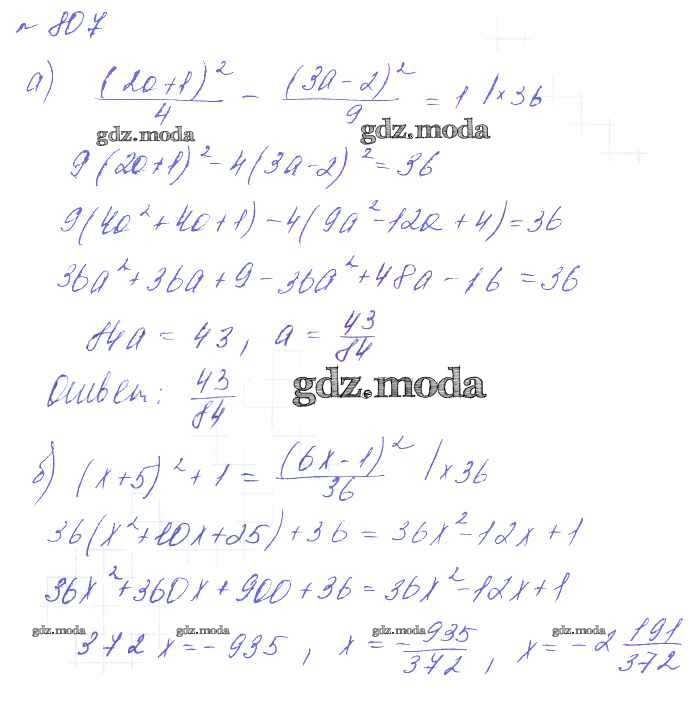 № 807
а) (2a+1)²/4 - (3a-2)²/9 = 1 |×36
gdz.moda gdz.moda
9(2a+1)² - 4(3a-2)² = 36
9(4a²+4a+1) - 4(9a²-12a+4) = 36
36a²+36a+9-36a²+48a-16 = 36
84a = 43, a = 43/84
Ответ: 43/84 gdz.moda
б) (x+5)²+1 = (6x-1)²/36 |×36
36(x²+10x+25)+36 = 36x²-12x+1
36x²+360x+900+36 = 36x²-12x+1
gdz.moda gdz.moda gdz.moda gdz.moda
372x = -935, x = -935/372, x = -2 191/372